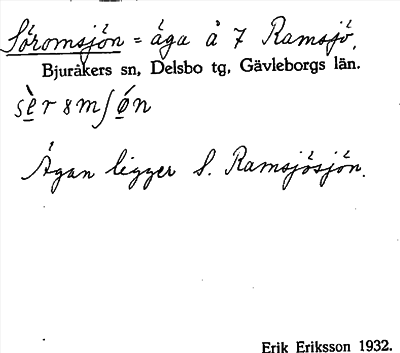 Söromsjön = äga å 7 Ramsjö,
Bjuråkers sn, Delsbo tg, Gävleborgs län.
Ägan ligger S. Ramsjösjön.
Erik Eriksson 1932.